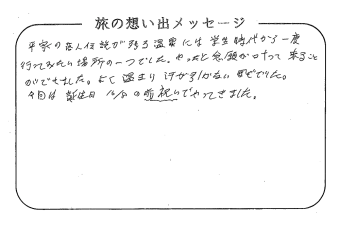 旅の想い出メッセージ
平家の落人伝説が残る温泉には学生時代から一度
行ってみたい場所の一つでした。やっと念願かなって来ること
ができました。よく温まり汗が引かない程でした。
今回は誕生日 の前祝いでやってきました。